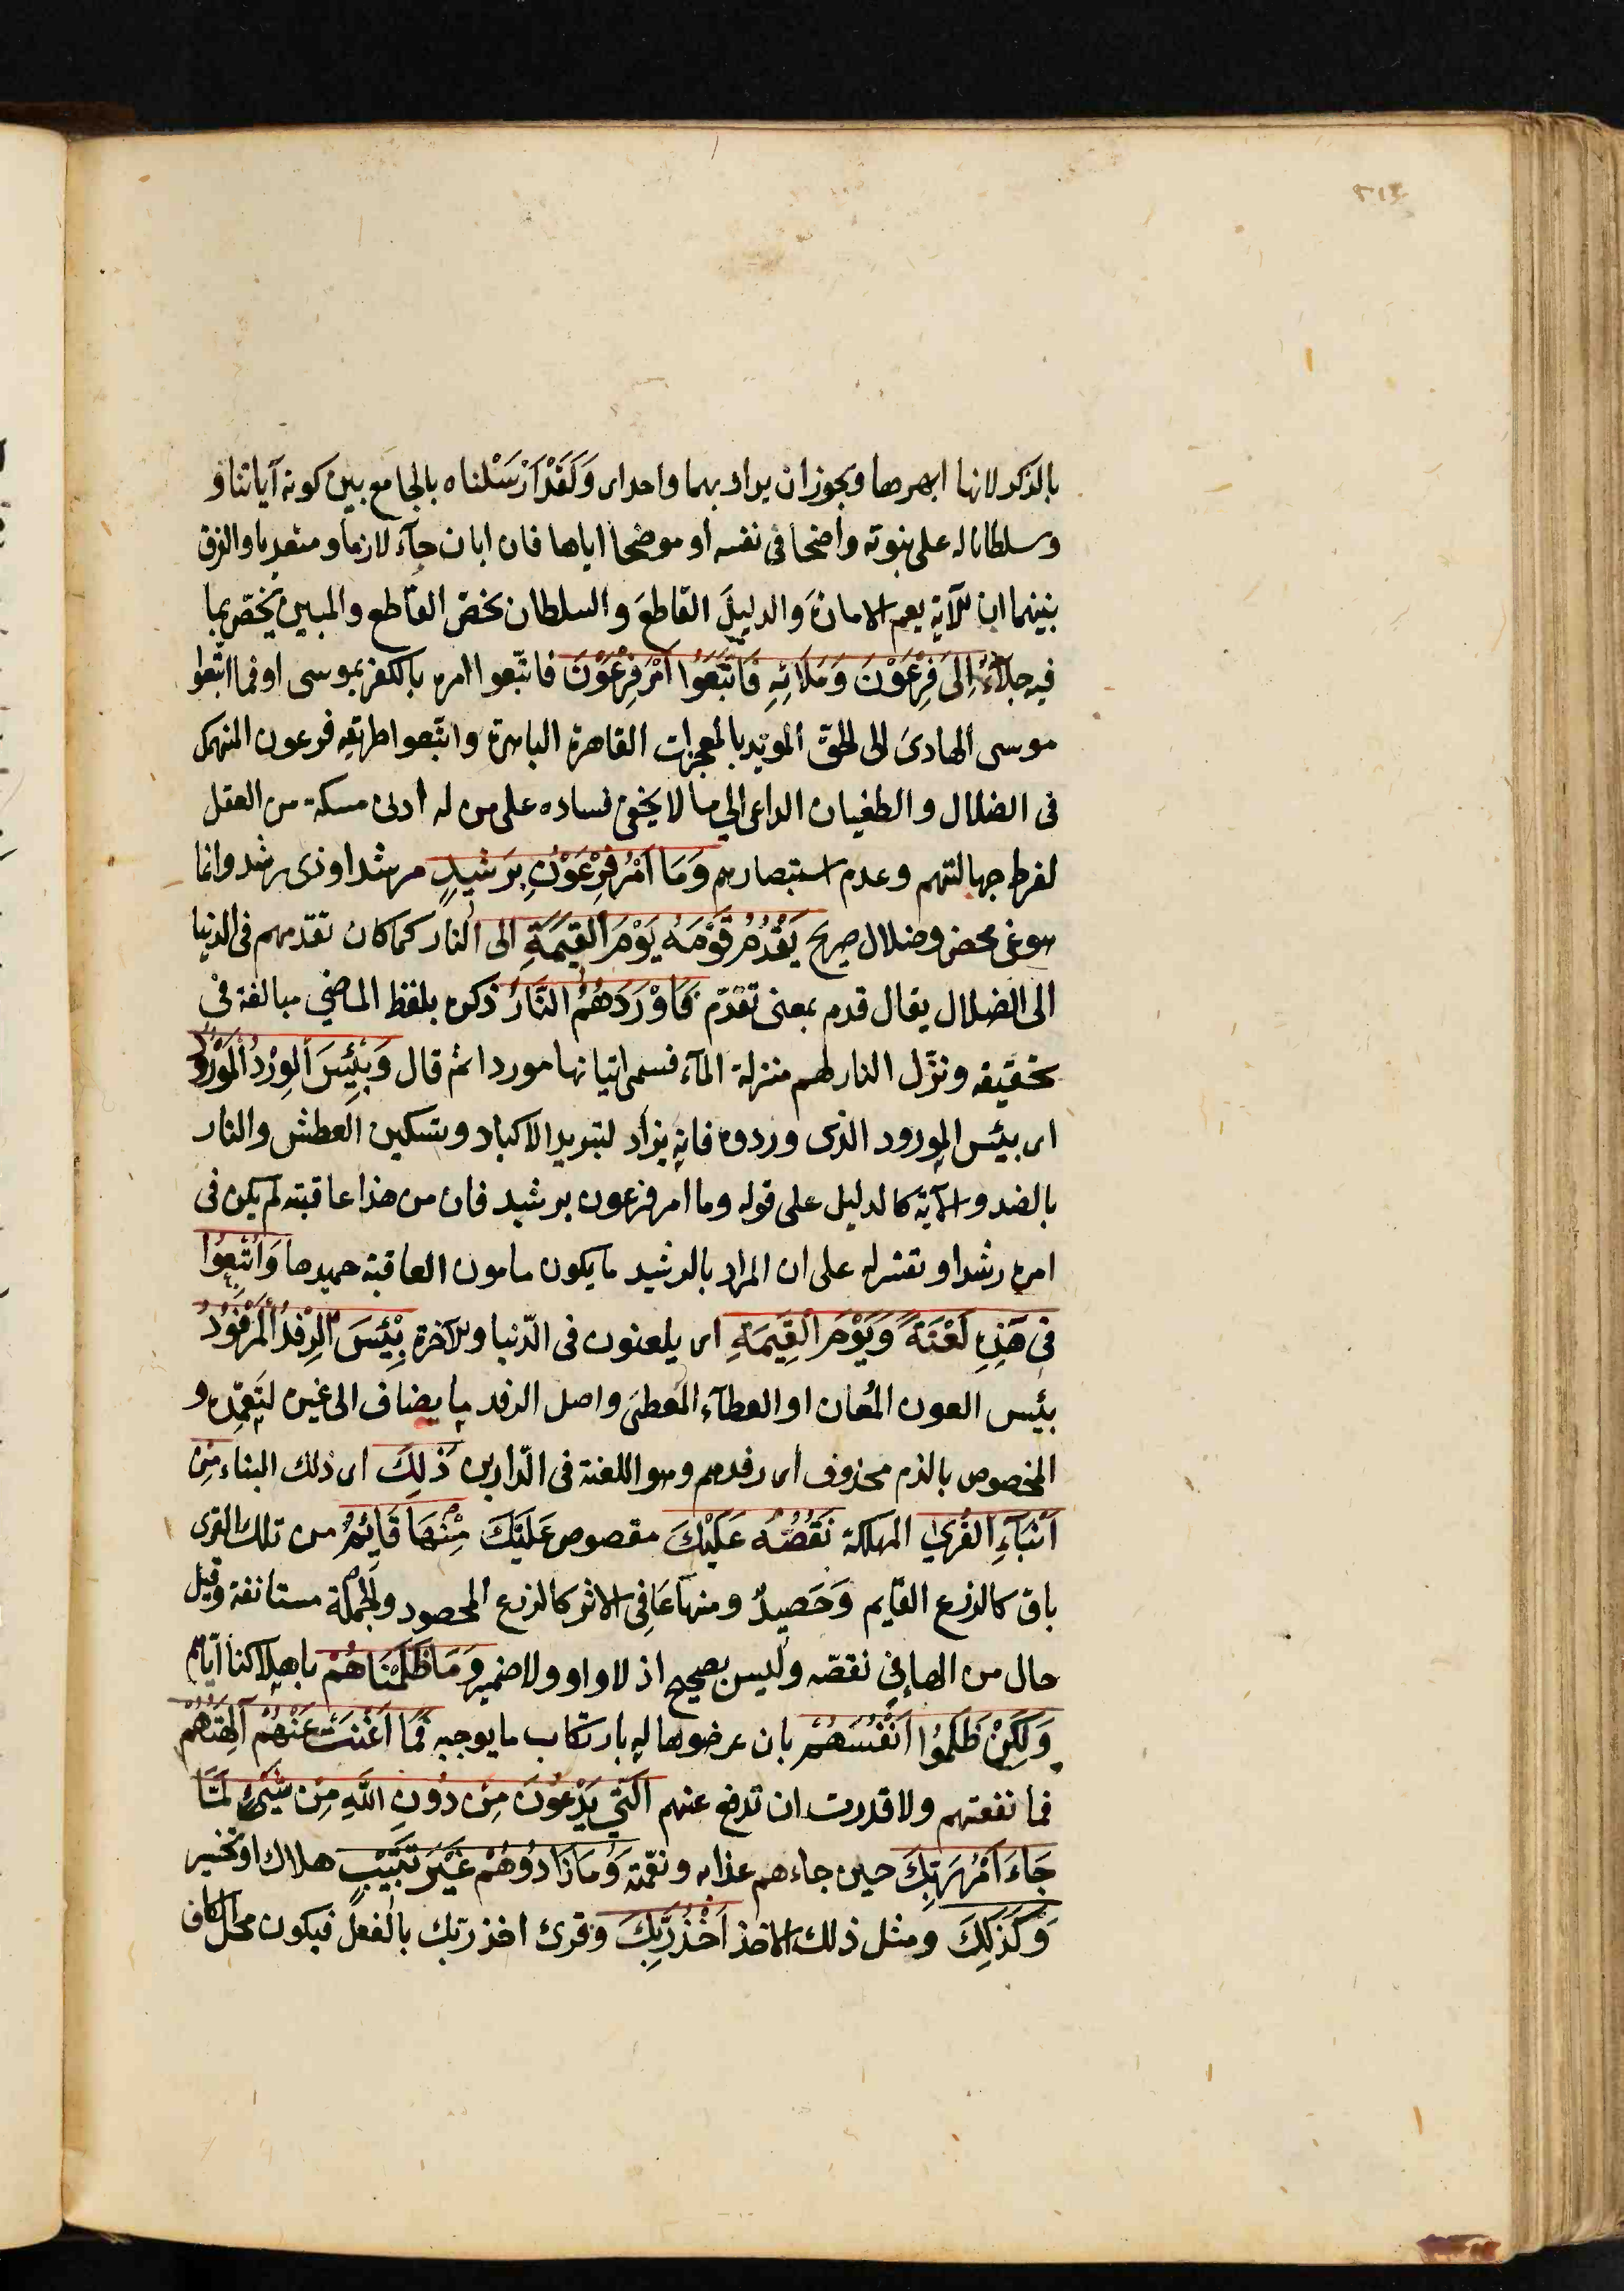 بالذكر لانها ابهرها ويجوز ان يراد بهما واحد اى وَلَقَدْ اَرْسَلْناه بالجامع بين كونه آياتنا و
وسلطانا له على نبوته واضحا فى نفسه او موضحا اياها فان ابان جآء لازما و متعديا والفرق
بينهما ان الآية يعم الامارة والدليلَ القاطعَ والسلطان يخص القاطع والمبين يخصّ بما
فيه جلآءٌ اِلىَ فِرْعَوْنَ وَمَلَائِهِ فَاتَّبَعُوْا اَمْرَ فِرْعَوْنَ فاتّبعوا امره بالكفر بموسى او فما اتّبعوا
موسى الهادىَ الى الحقّ المويّد بالمعجزات القاهرة الباهرة واتّبعوا طريقه فرعون المنهمك
فى الضلال والطغيان الداعى الي ما لا يخفى فساده على من له ادنى مسكة من العقل
لفرط جهالتهم وعدم استبصارهم وَمَا اَمْرُ فِرْعَوْنِ بِرَشيدٍ مرشد او ذى رشد وانما
هو غى محض وضلال صريح يَقْدُمُ قَوْمَهُ يَوْمَ القِيٰمَةِ الى النار كما كان تقدّمهم فى الدنيا
الى الضلال يقال قدم بمعنى تقدّم فَاَوْرَدَهُمُ النَّارَ ذكره بلفظ الماضي مبالغة فى
تحقيقه ونزّل النار لهم منزلة المآء فسمى اتيانها موردا ثم قال وَبِئْسَ الوِرْدُ المَوْرُوْدُ
اى بئس المورود الذى وردوه فانه يراد لتبريد الاكباد وتسكين العطش والنار
بالضد والآية كالدليل على قوله وما امر فرعون برشيد فان من هذا عاقبته لم يكن فى
امره رشد او تفسر له على ان المراد بالرشيد ما يكون مامون العاقبة حميدها وَاُتْبِعُوْا
فى هَذِهِ لَعْنَةً وَيَوْمَ القِيٰمَةِ اى يلعنون فى الدّنيا والآخرة بِئْسَ الرِّفْدُ المَرْفُوْدُ
بئس العون المُعان او العطآء المعطىَ واصل الرفد ما يضاف الى غيره ليَعمِده و
المخصوص بالذم محذوف اى رفدهم وهو اللعنة فى الدّارين ذَلِكَ اى ذلك النباء مِن
اَنْبَآءِ القُرَىٰ المهلكة نَقُصُّهُ عَلَيْكَ مقصوص عَلَيْكَ مِنْهَا قَائِمٌ من تلك القرى
باق كالزرع القآيم وَحَصِيدٌ ومنها عافى الاثر كالزرع المحصود والجملة مستانفة وقيل
حال من الهاء فى نقصّه وليس بصحيح اذ لا واو ولا ضمير وَمَا ظَلَمْنَاهُمْ باهلاكنا ايّاهم
وَلَكِنْ ظَلَمُوْا اَنْفُسَهُمْ بان عرضوها له بارتكاب ما يوجبه فَمَا اَغْنَتْ عَنْهُمْ آلِهَتُهُمْ
فما نفعتهم ولا قدرت ان تدفع عنهم الَّتِي يَدْعُونَ مِنْ دُونِ اللّهِ مِن شَيْئٍ لَمَّا
جَاءَ اَمْرُ رَبِّكَ حين جاءهم عذابه ونقمته وَمَا زَادُوْهُمْ غَيْرَ تَتْبِيْبٍ هلاك او تخسير
وَكَذَلِكَ ومثل ذلك الاخذ اَخْذُ رَبِّكَ وقرئ اخذ ربّك بالفعل فيكون محل الكاف